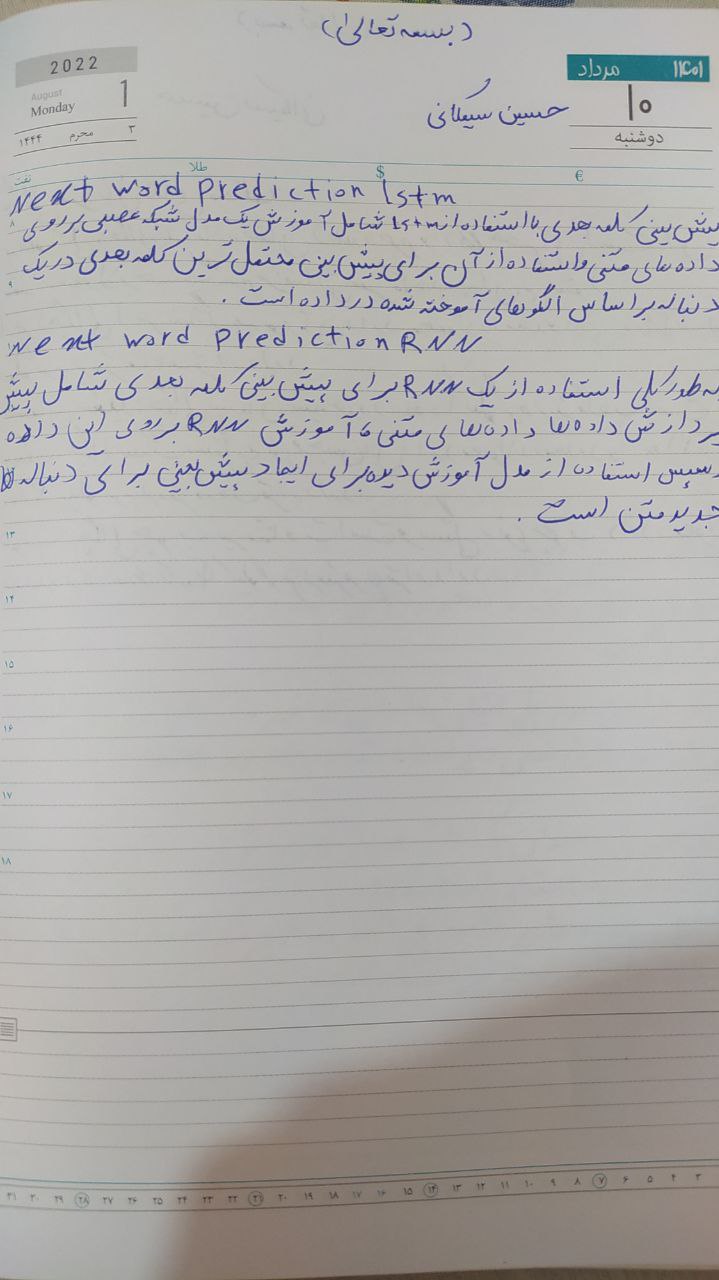 (بسمه تعالی)
2022
August
Monday
1
۱۴۴۴ محرم ۳
۱۴۰۱ مرداد
۱۰
دوشنبه
حسین
نفت طلا $ €
Next word prediction lstm
پیش بینی کلمه بعدی با استفاده از lstm شامل آموزش یک مدل شبکه عصبی بر روی
داده های متنی و استفاده از آن برای پیش بینی محتمل ترین کلمه بعدی در یک
دنباله بر اساس الگوهای آموخته شده در داده است .
Next word prediction RNN
به طور کلی استفاده از یک RNN برای پیش بینی کلمه بعدی شامل پیش
پردازش داده ها داده های متنی ، آموزش RNN بر روی این داده
و سپس استفاده از مدل آموزش دیده برای ایجاد پیش بینی برای دنباله
جدید متن است .
۸
۹
۱۳
۱۴
۱۵
۱۶
۱۷
۱۸
۳۱ ۳۰ ۲۹ ۲۸ ۲۷ ۲۶ ۲۵ ۲۴ ۲۳ ۲۲ ۲۱ ۲۰ ۱۹ ۱۸ ۱۷ ۱۶ ۱۵ ۱۴ ۱۳ ۱۲ ۱۱ ۱۰ ۹ ۸ ۷ ۶ ۵ ۴ ۳